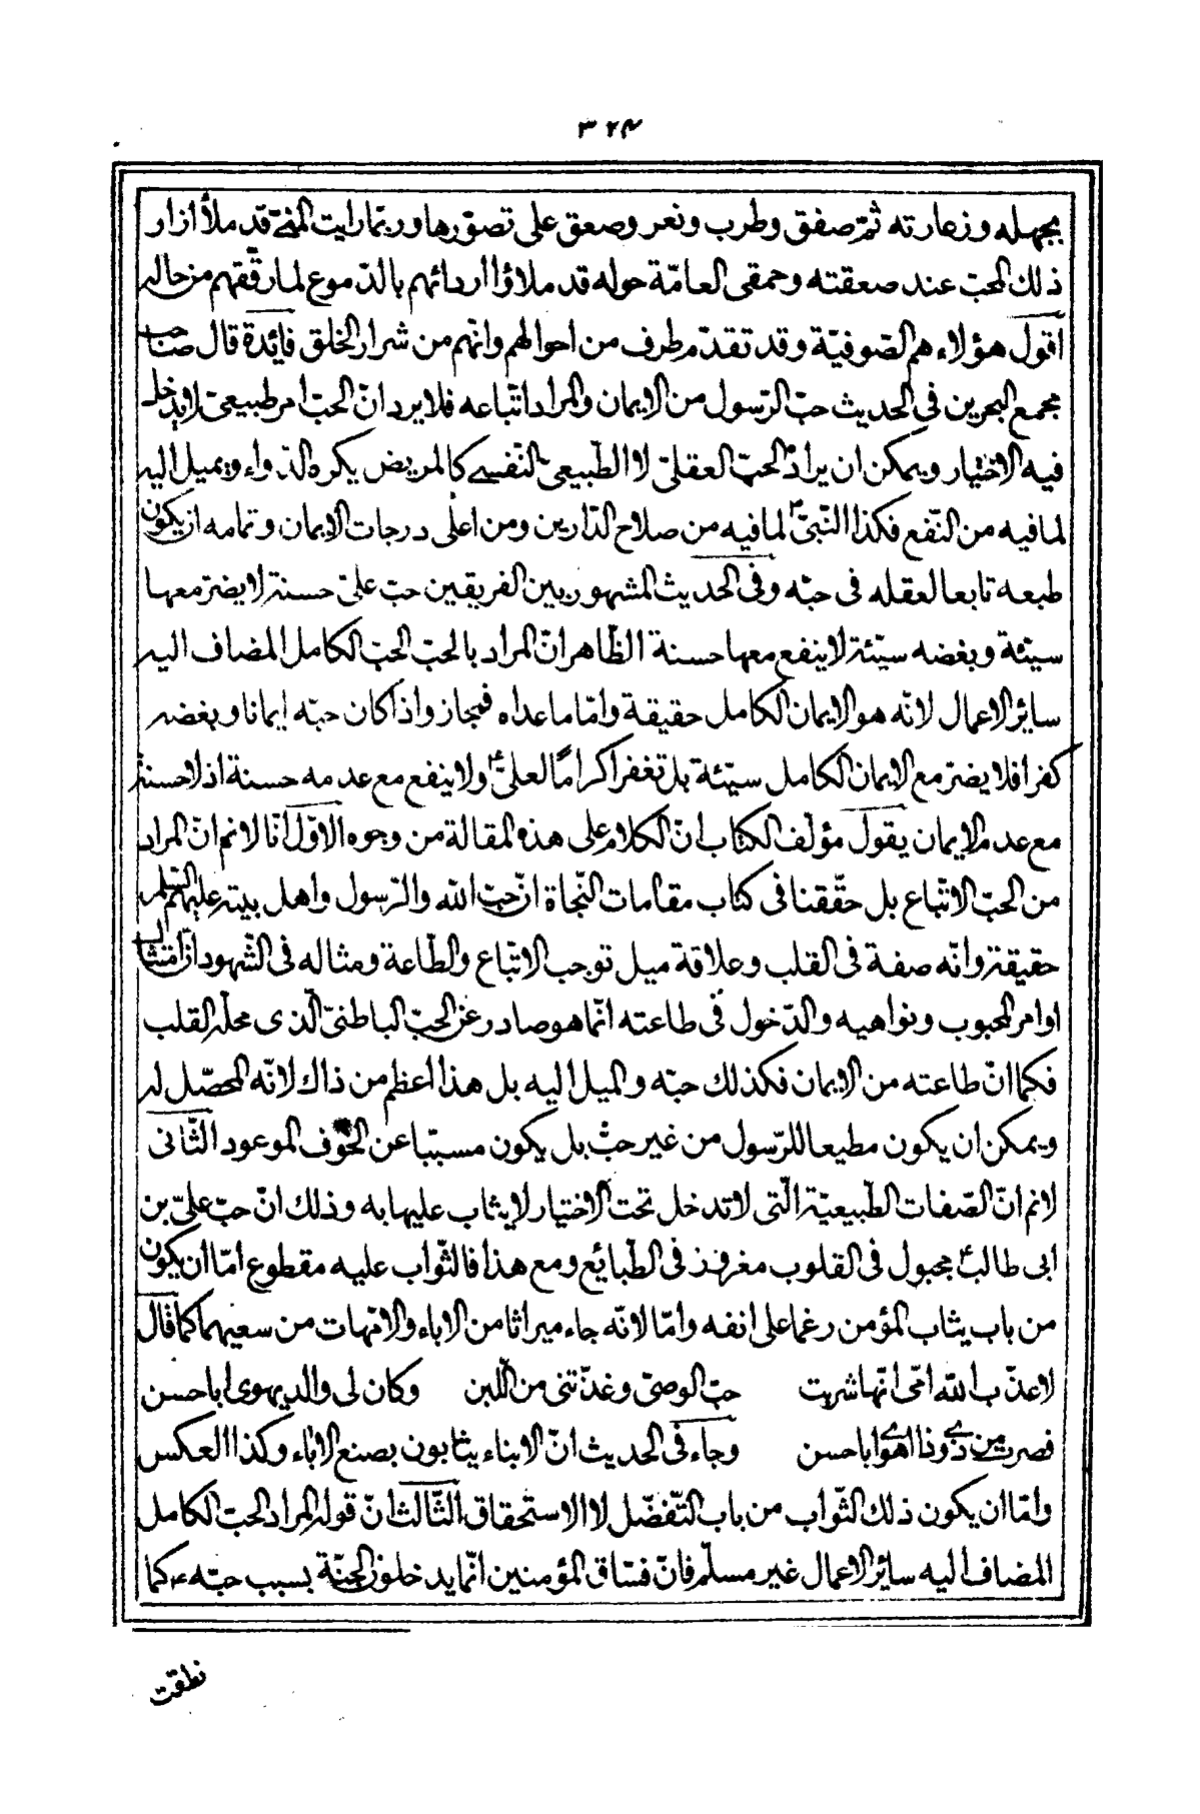 ٣٢٤
بجهله وزعارته ثمّ صفق وطرب ونعر وصعق على تصوّرها وربّما رايت المنىّ قد ملأ ازار
ذلك المحبّ عند صعقته وحمقى العامّة حوله قد ملاؤا اردائهم بالدّموع لما رقّقهم من حاله
اقول هؤلاء هم الصّوفيّة وقد تقدّم طرف من احوالهم وانّهم من شرار الخلق فائدة قال صاحب
مجمع البحرين فى الحديث حبّ الرّسول من الايمان والمراد اتّباعه فلا يرد انّ الحبّ امر طبيعىّ لا يدخل
فيه الاختيار ويمكن ان يراد الحبّ العقلىّ لا الطّبيعى النّفسى كالمريض يكره الدّواء ويميل اليه
لما فيه من النّفع فكذا النّبىّ لما فيه من صلاح الدّارين ومن اعلى درجات الايمان وتمامه ان يكون
طبعه تابعا لعقله فى حبّه وفى الحديث المشهور بين الفريقين حبّ علىّ حسنة لا يضرّ معها
سيّئة وبغضه سيّئة لا ينفع معها حسنة الظّاهر انّ المراد بالحبّ الحبّ الكامل المضاف اليه
سائر الاعمال لانّه هو الايمان الكامل حقيقة وامّا ما عداه فمجاز واذا كان حبّه ايمانا وبغضه
كفرا فلا يضرّ مع الايمان الكامل سيّئة بل تغفر اكراما لعلىّ ع ولا ينفع مع عدمه حسنة اذ لا حسنة
مع عدم الايمان يقول مؤلّف الكتاب انّ الكلام على هذه المقالة من وجوه الاوّل انّا لا نم انّ المراد
من الحبّ الاتّباع بل حقّقنا فى كتاب مقامات النّجاة انّ حبّ الله والرّسول واهل بيته عليهم السّلم
حقيقة وانّه صفة فى القلب وعلاقة ميل توجب الاتّباع والطّاعة ومثاله فى الشّهود انّ امتثال
اوامر المحبوب ونواهيه والدّخول فى طاعته انّما هو صادر عن الحبّ الباطنىّ الّذى محلّه القلب
فكما انّ طاعته من الايمان فكذلك حبّه والميل اليه بل هذا اعظم من ذاك لانّه المحصّل له
ويمكن ان يكون مطيعا للرّسول من غير حبّ بل يكون مسبّبا عن الخوف الموعود الثّانى
لا نم انّ الصّفات الطّبيعيّة الّتى لا تدخل تحت الاختيار لا يثاب عليها به وذلك انّ حبّ علىّ بن
ابى طالب ع مجبول فى القلوب مغروز فى الطّبائع ومع هذا فالثّواب عليه مقطوع امّا ان يكون
من باب يثاب المؤمن رغما على انفه وامّا لانّه جاء ميراثا من الاباء والامّهات من سعيهما كما قال
لا عذّب الله امّى انّها شربت حبّ الوصىّ وغذّتنى من اللّبن وكان لى والد يهوى ابا حسن
فصرت من ذى وذا اهوى ابا حسن وجاء فى الحديث انّ الابناء يثابون بصنع الاباء وكذا العكس
وامّا ان يكون ذلك الثّواب من باب التّفضّل لا الاستحقاق الثّالث انّ قوله المراد الحبّ الكامل
المضاف اليه سائر الاعمال غير مسلّم فانّ فسّاق المؤمنين انّما يدخلون الجنّة بسبب حبّه ع كما
نطقت